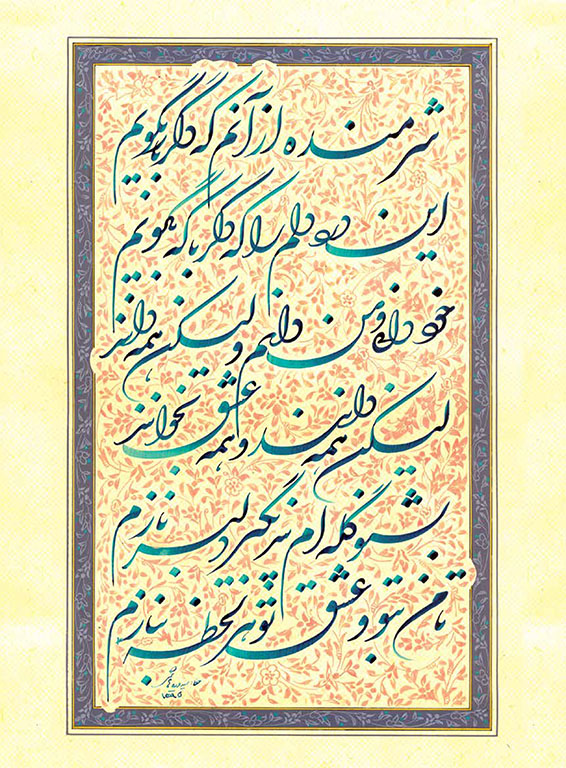 شرمنده از آنم که دگر باز بگویم
این درد دلم را که دگر با که بگویم
خود دانی و من دانم و لیکن همه دانند
لیکن همه دانند و همه عشق نخوانند
بشنو گله ام سر نگیر دلبر نازم
تا من بتو و عشق تو هر لحظه بنازم